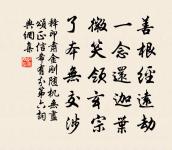 善根經遠劫
一念還迦葉
微笑領玄宗
了本無交涉
釋印肅金剛隨機無盡
頌正信希有分第六詞
典網集